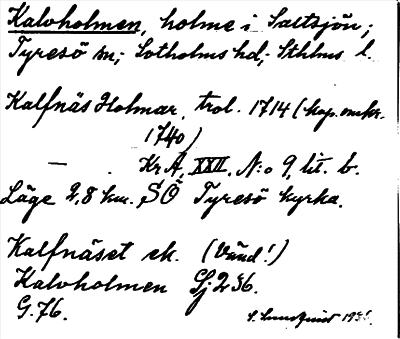 Kalvholmen, holme i Saltsjön;
Tyresö sn; Sotholms hd; Sthlms l.
Kalfnäs Holmar, trol. 1714 (kop. omkr.
1740)
— Kr.A. XXII, N:o 9, lit. b.
Läge 2,8 km. SÖ Tyresö kyrka.
Kalfnäset ek. (Vänd!)
Kalvholmen Sj. 236.
G. 76.
S. Lundquist